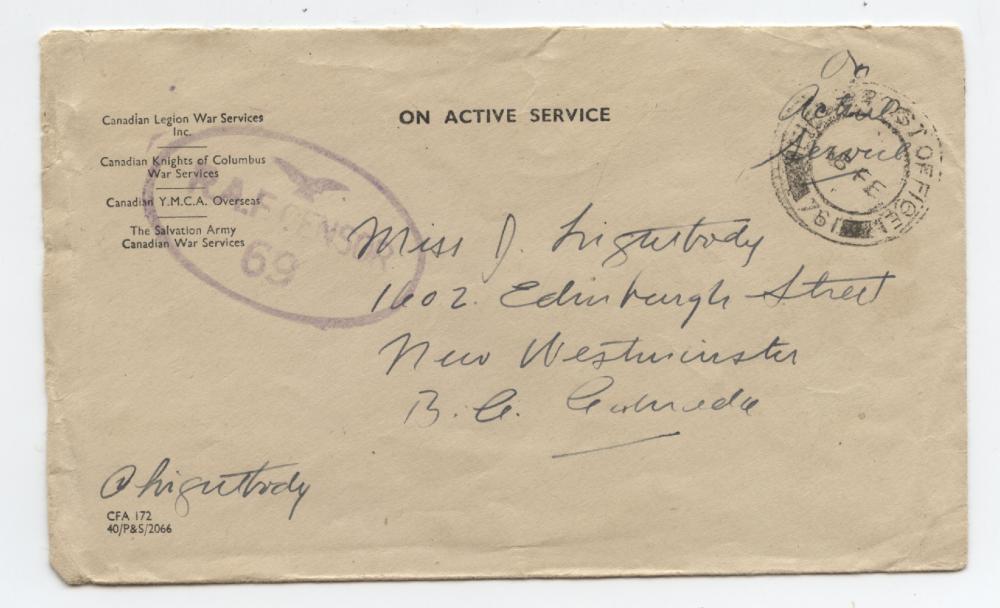 Canadian Legion War Services
Inc.
Canadian Knights of Columbus
War Services
Canadian Y.M.C.A. Overseas
The Salvation Army
Canadian War Services
ON ACTIVE SERVICE
On
Active
Service
POST OFFICE
FE
R.A.F CENSOR
69
Miss J. Lightbody
1602. Edinburgh Street
New Westminster
B.C. Canada
Lightbody
CFA 172
40/P&S/2066